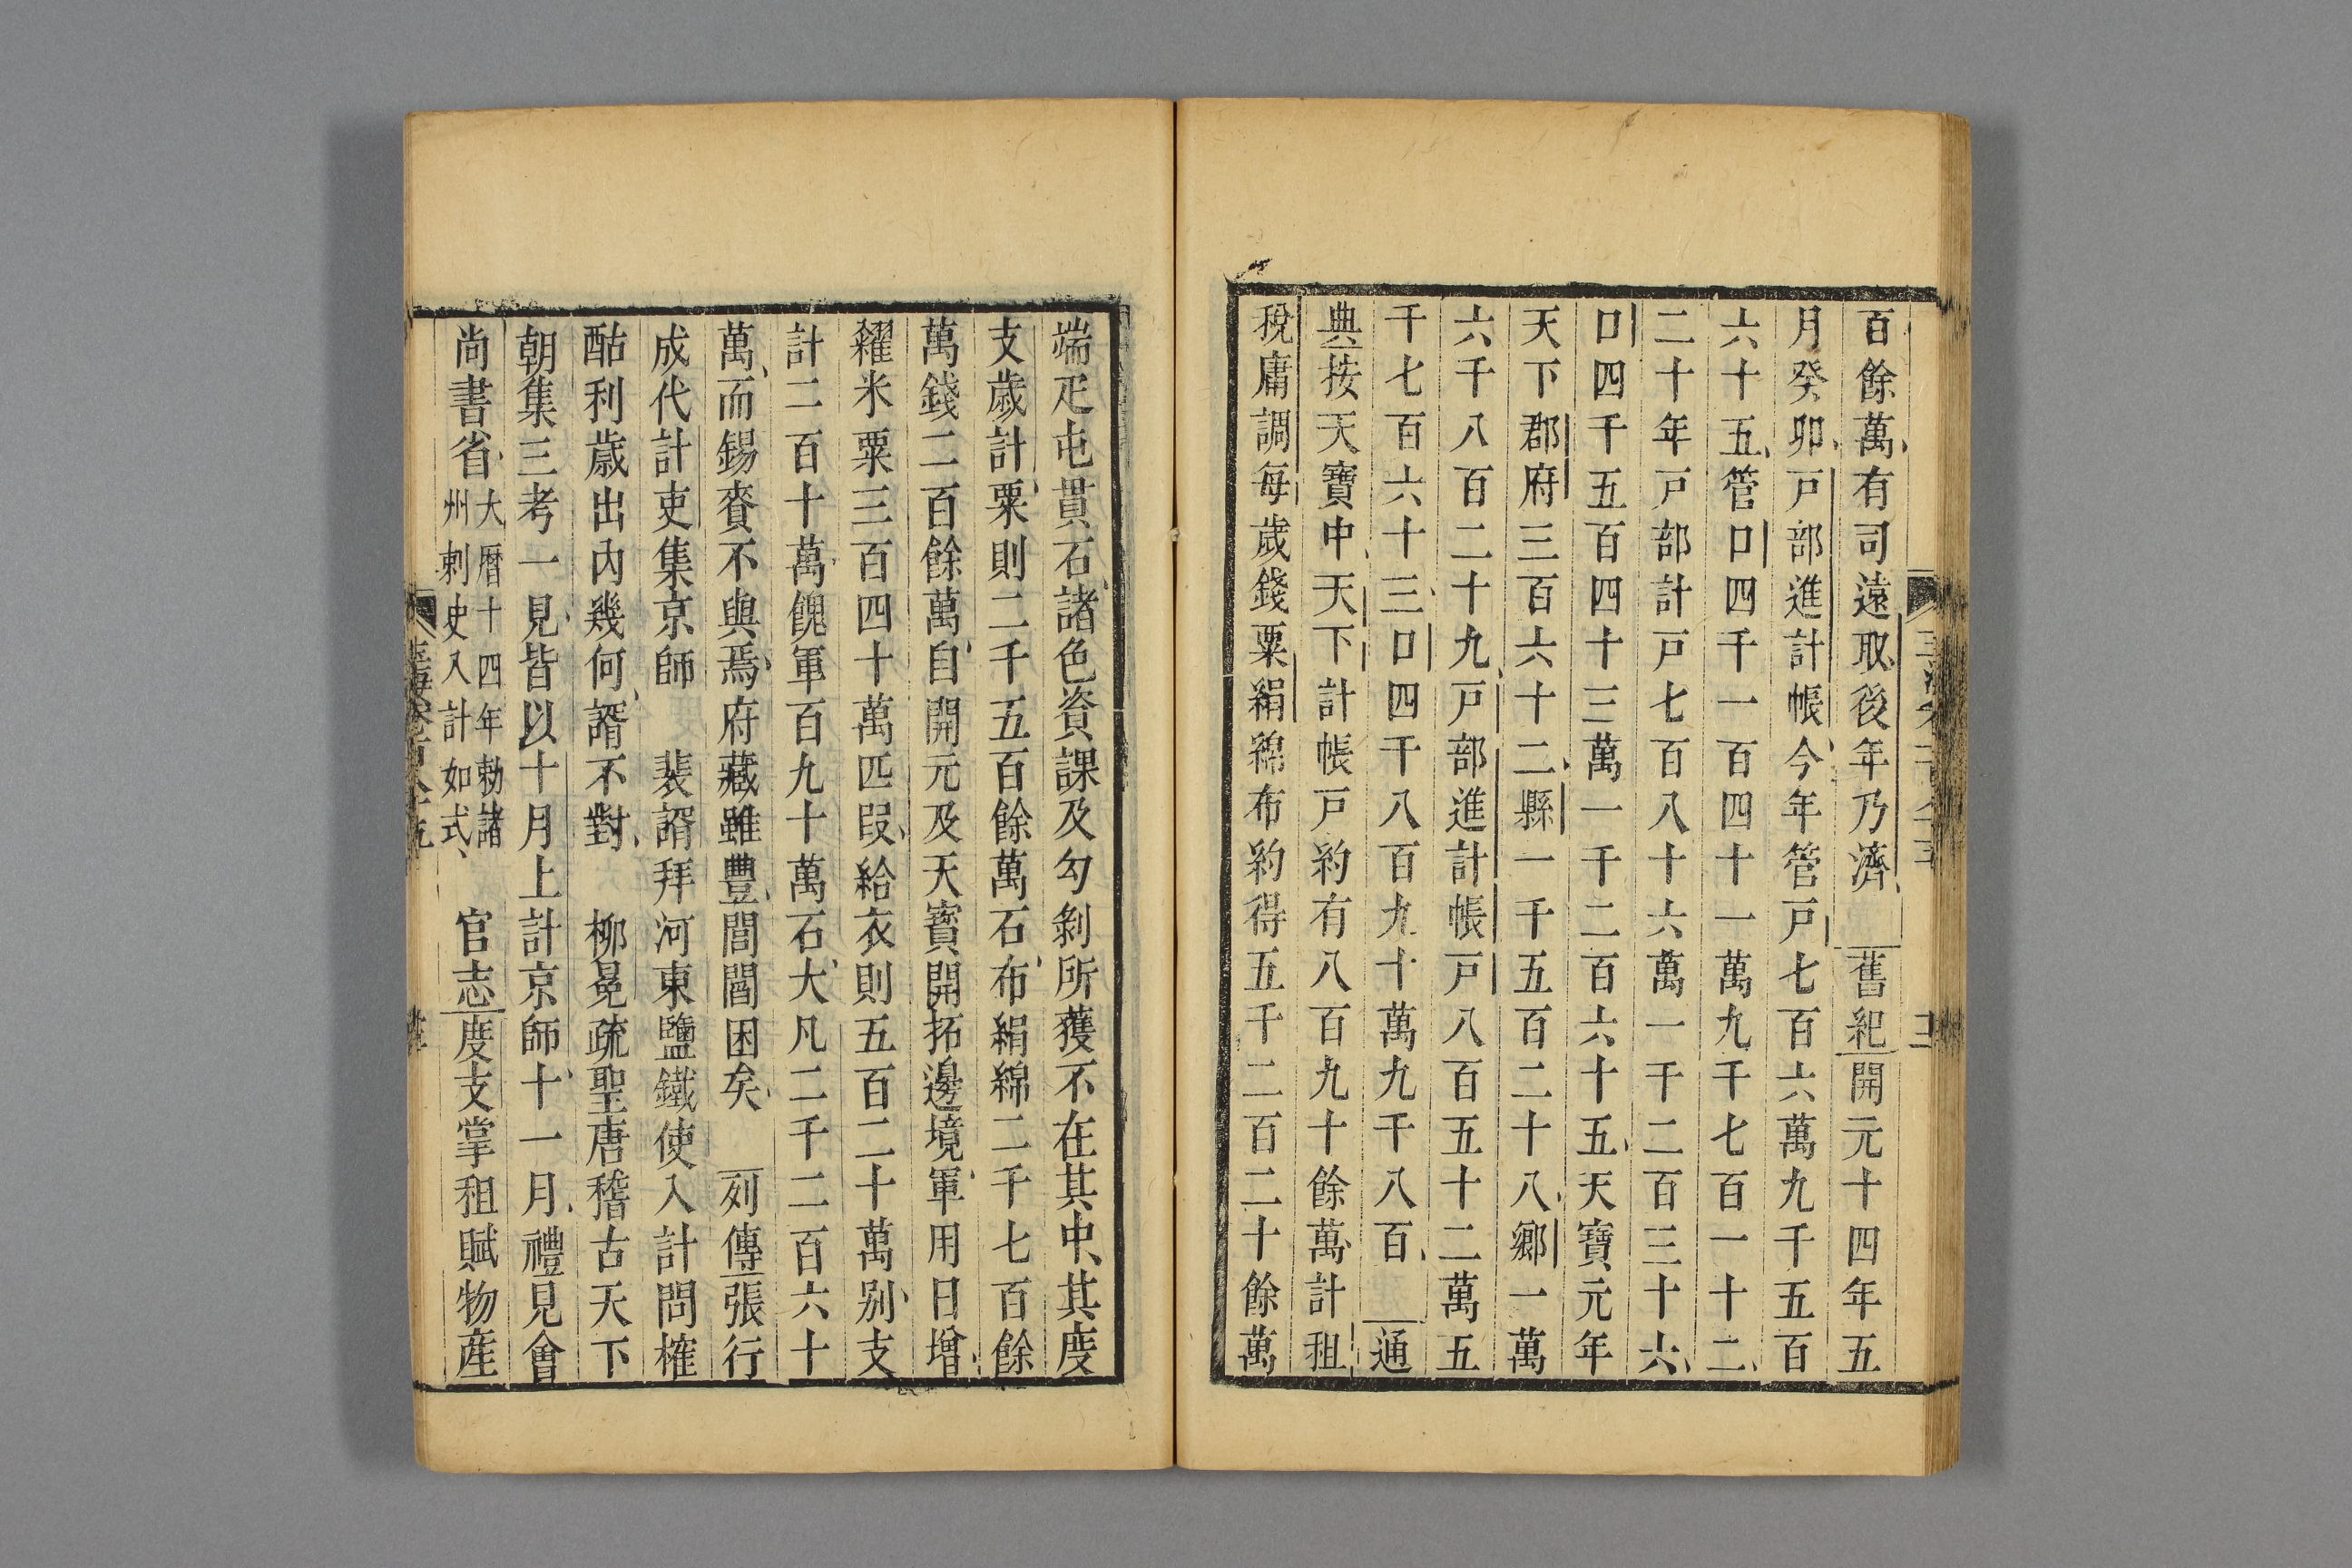 百餘萬、有司遠取、後年乃濟、 舊紀開元十四年五
月癸卯、戸部進計帳、今年管戸七百六萬九千五百
六十五、管口四千一百四十一萬九千七百一十二、
二十年戸部計戸七百八十六萬一千二百三十六、
口四千五百四十三萬一千二百六十五、天寶元年
天下郡府三百六十二、縣一千五百二十八、鄉一萬
六千八百二十九、戸部進計帳戸八百五十二萬五
千七百六十三、口四千八百九十萬九千八百、 通
典按天寶中、天下計帳戸約有八百九十餘萬、計租
稅庸調每歲錢粟絹綿布約得五千二百二十餘萬
端疋屯貫石、諸色資課及勾剝所獲不在其中、其度
支歲計、粟則二千五百餘萬石、布絹綿二千七百餘
萬、錢二百餘萬、自開元及天寶開拓邊境、軍用日增、
糴米粟三百四十萬匹段、給衣則五百二十萬、别支
計二百十萬、餽軍百九十萬石、大凡二千二百六十
萬、而錫賚不與焉、府藏雖豐、閭閻困矣、 列傳張行
成代計吏集京師 裴諝拜河東鹽鐵使入計問榷
酤利歲出内幾何、諝不對、 柳冕疏聖唐稽古天下
朝集三考一見、皆以十月上計京師、十一月、禮見會
尚書省、大曆十四年勅諸
州刺史入計如式、 官志度支掌租賦物産